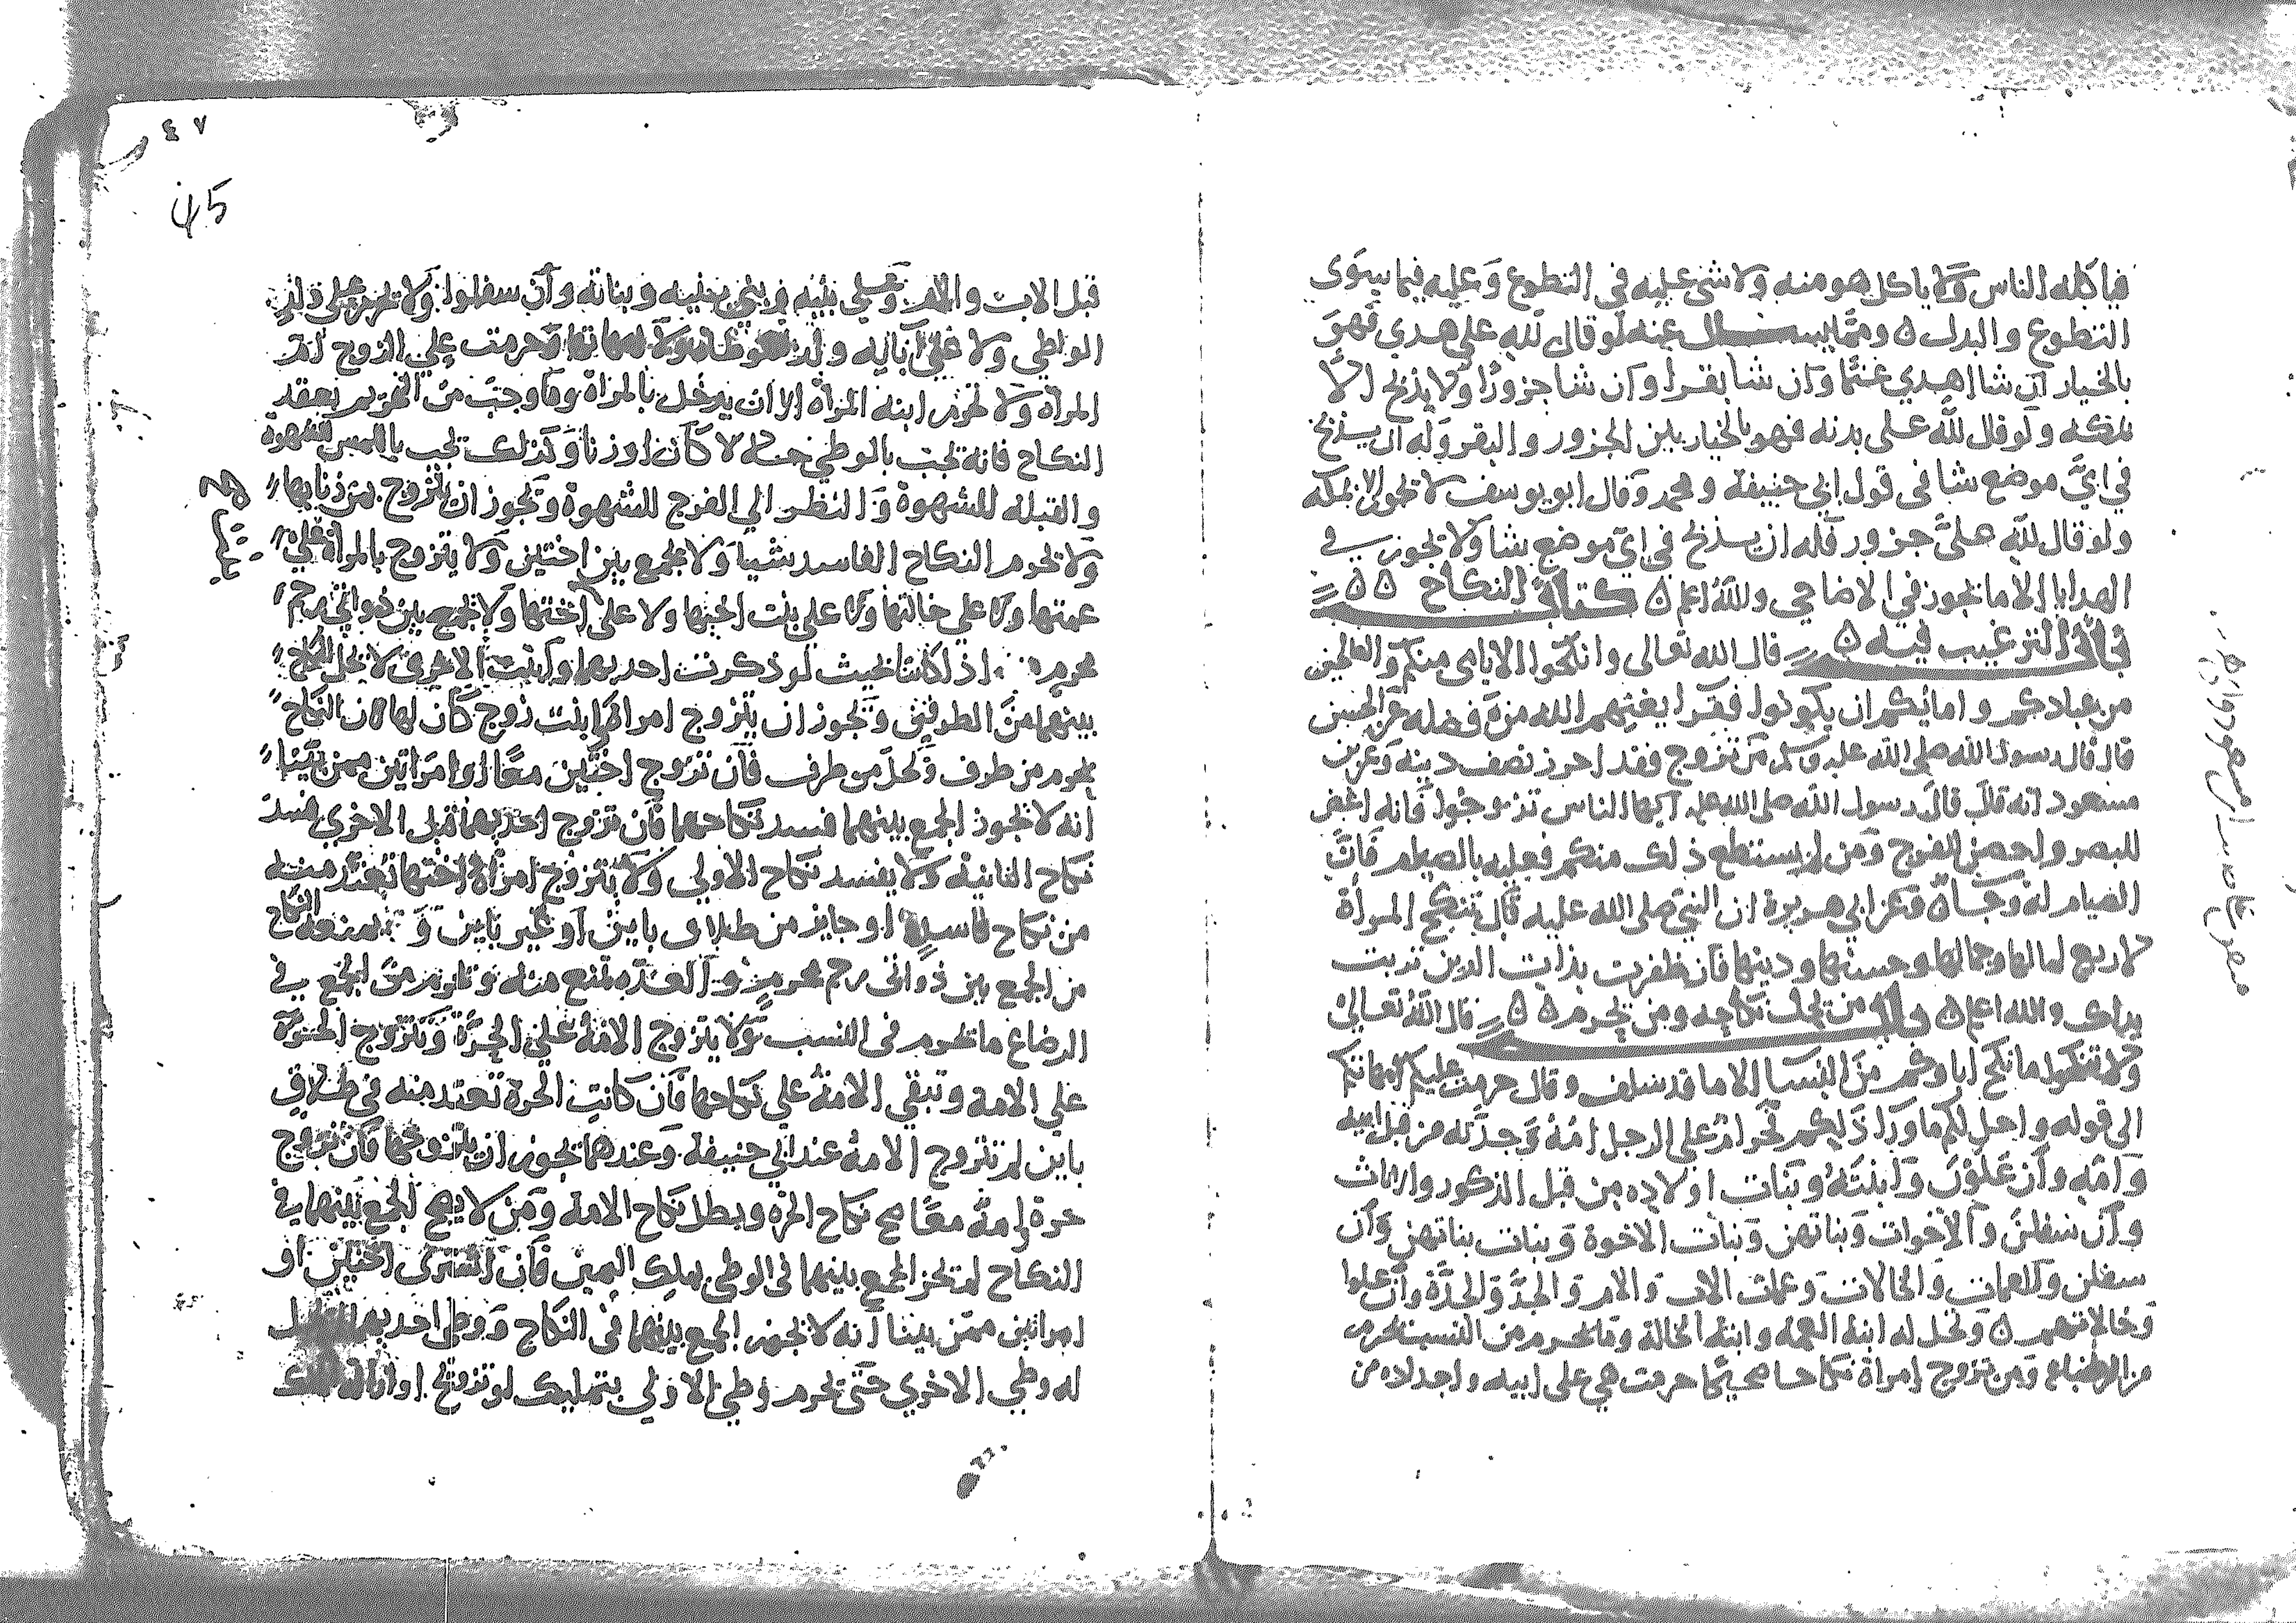 فياكله الناس ولا ياكل هو منه ولا شي عليه في التطوع وعليه فيما يسوى
التطوع والبدل ومما يسال عنه لو قال لله على هدي فهو
بالخيار ان شا اهدي غنما وان شا بقرا وان شا جزورا ولا يذبح الا
بمكه ولو قال لله على بدنه فهو بالخيار بين الجزور والبقر وله ان يذبح
في اي موضع شا في قول ابي حنيفة ومحمد وقال ابو يوسف لا تجوز الا بمكه
ولو قال لله على جزور فله ان يذبح في اي موضع شا ولا يجوز في
الهدايا الا ما يجوز في الاضاحي والله اعلم كتاب النكاح
باب الترغيب فيه قال الله تعالى وانكحوا الايامى منكم والصالحين
من عبادكم وامائكم ان يكونوا فقرا يغنهم الله من فضله عن الحسن
قال قال رسول الله صلى الله عليه وسلم من تزوج فقد احرز نصف دينه وعن بن
مسعود انه قال قال رسول الله صلى الله عليه ايها الناس تزوجوا فانه اغض
للبصر واحصن للفرج ومن لم يستطع ذلك منكم فعليه بالصيام فان
الصيام له وجاه وعن ابي هريرة ان النبي صلى الله عليه قال تنكح المرأة
لاربع لمالها وجمالها وحسنها ودينها فان ظفرت بذات الدين تربت
يداك والله اعلم باب من يحل نكاحه ومن يحرم قال الله تعالى
ولا تنكحوا ما نكح اباوكم من النسا الا ما قد سلف وقال حرمت عليكم امهاتكم
الى قوله واحل لكم ما ورا ذلكم فحرام على الرجل امه وجدته من قبل ابيه
وامه وان علون وابنته وبنات اولاده من قبل الذكور والاناث
وان سفلن والاخوات وبناتهن وبنات الاخوة وبنات بناتهن وان
سفلن والعمات والخالات وعمات الاب والام والجد والجدة وان علوا
وخالاتهم وتحل له ابنة العمه وابنة الخالة وما يحرم من النسب يحرم
من الرضاع ومن تزوج امراة نكاحا صحيحا حرمت هي على ابيه واجداده من
٤٧
45
قبل الاب والام وعلى بنيه وبني بنيه وبناته وان سفلوا ولا تحرم على ذلك
الواطي ولا على ابائه وحرمت على الزوج ام
المرأة ولا تحرم ابنة المرأة الا ان يدخل بالمرأة وما وجب من التحريم بعقد
النكاح فانه يجب بالوطي حلالا كان او زنا وكذلك تجب باللمس للشهوة
والقبلة للشهوة والنظر الي الفرج للشهوة وتجوز ان يتزوج بمن زنا بها
ولا تحرم النكاح الفاسد شيا ولا يجمع بين اختين ولا يتزوج بالمراة على
عمتها ولا على خالتها ولا على بنت اخيها ولا على اختها ولا يجمع بين ذواتي رحم
محرم اذا كانتا بحيث لو ذكرت احديهما وانثت الاخرى لا تحل النكاح
بينهما من الطرفين وتجوز ان يتزوج امراة وابنت زوج كان لها لان النكاح
يحرم من طرف وتحل من طرف فان تزوج اختين معا او امراتين ممن بينا
انه لا يجوز الجمع بينهما فسد نكاحهما فان تزوج احديهما قبل الاخري فسد
نكاح الثانية ولا يفسد نكاح الاولي ولا يتزوج امراة اختها تعتد منه
من نكاح فاسد او جايز من طلاق باين او غير باين النكاح
من الجمع بين ذواتي رحم محرم والعدة تمنع منه وتحرم من الجمع في
الرضاع ما تحرم في النسب ولا يتزوج الامة على الحرة وتتزوج الحرة
علي الامة وتبقي الامة علي نكاحها فان كانت الحرة تعتد منه في طلاق
باين لم تتزوج الامة عند ابي حنيفة وعندهما يجوز ان يتزوجها فان تزوج
حرة وامة معا صح نكاح الحره وبطل نكاح الامة ومن لا يصح الجمع بينهما في
النكاح لم تجز الجمع بينهما في الوطي بملك اليمين فان اشترى اختين او
امراتين ممن بينا انه لا تجوز الجمع بينهما في النكاح ووطي احديهما لم تحل
له وطي الاخري حتى تحرم وطي الاولي بتمليك او تزويج